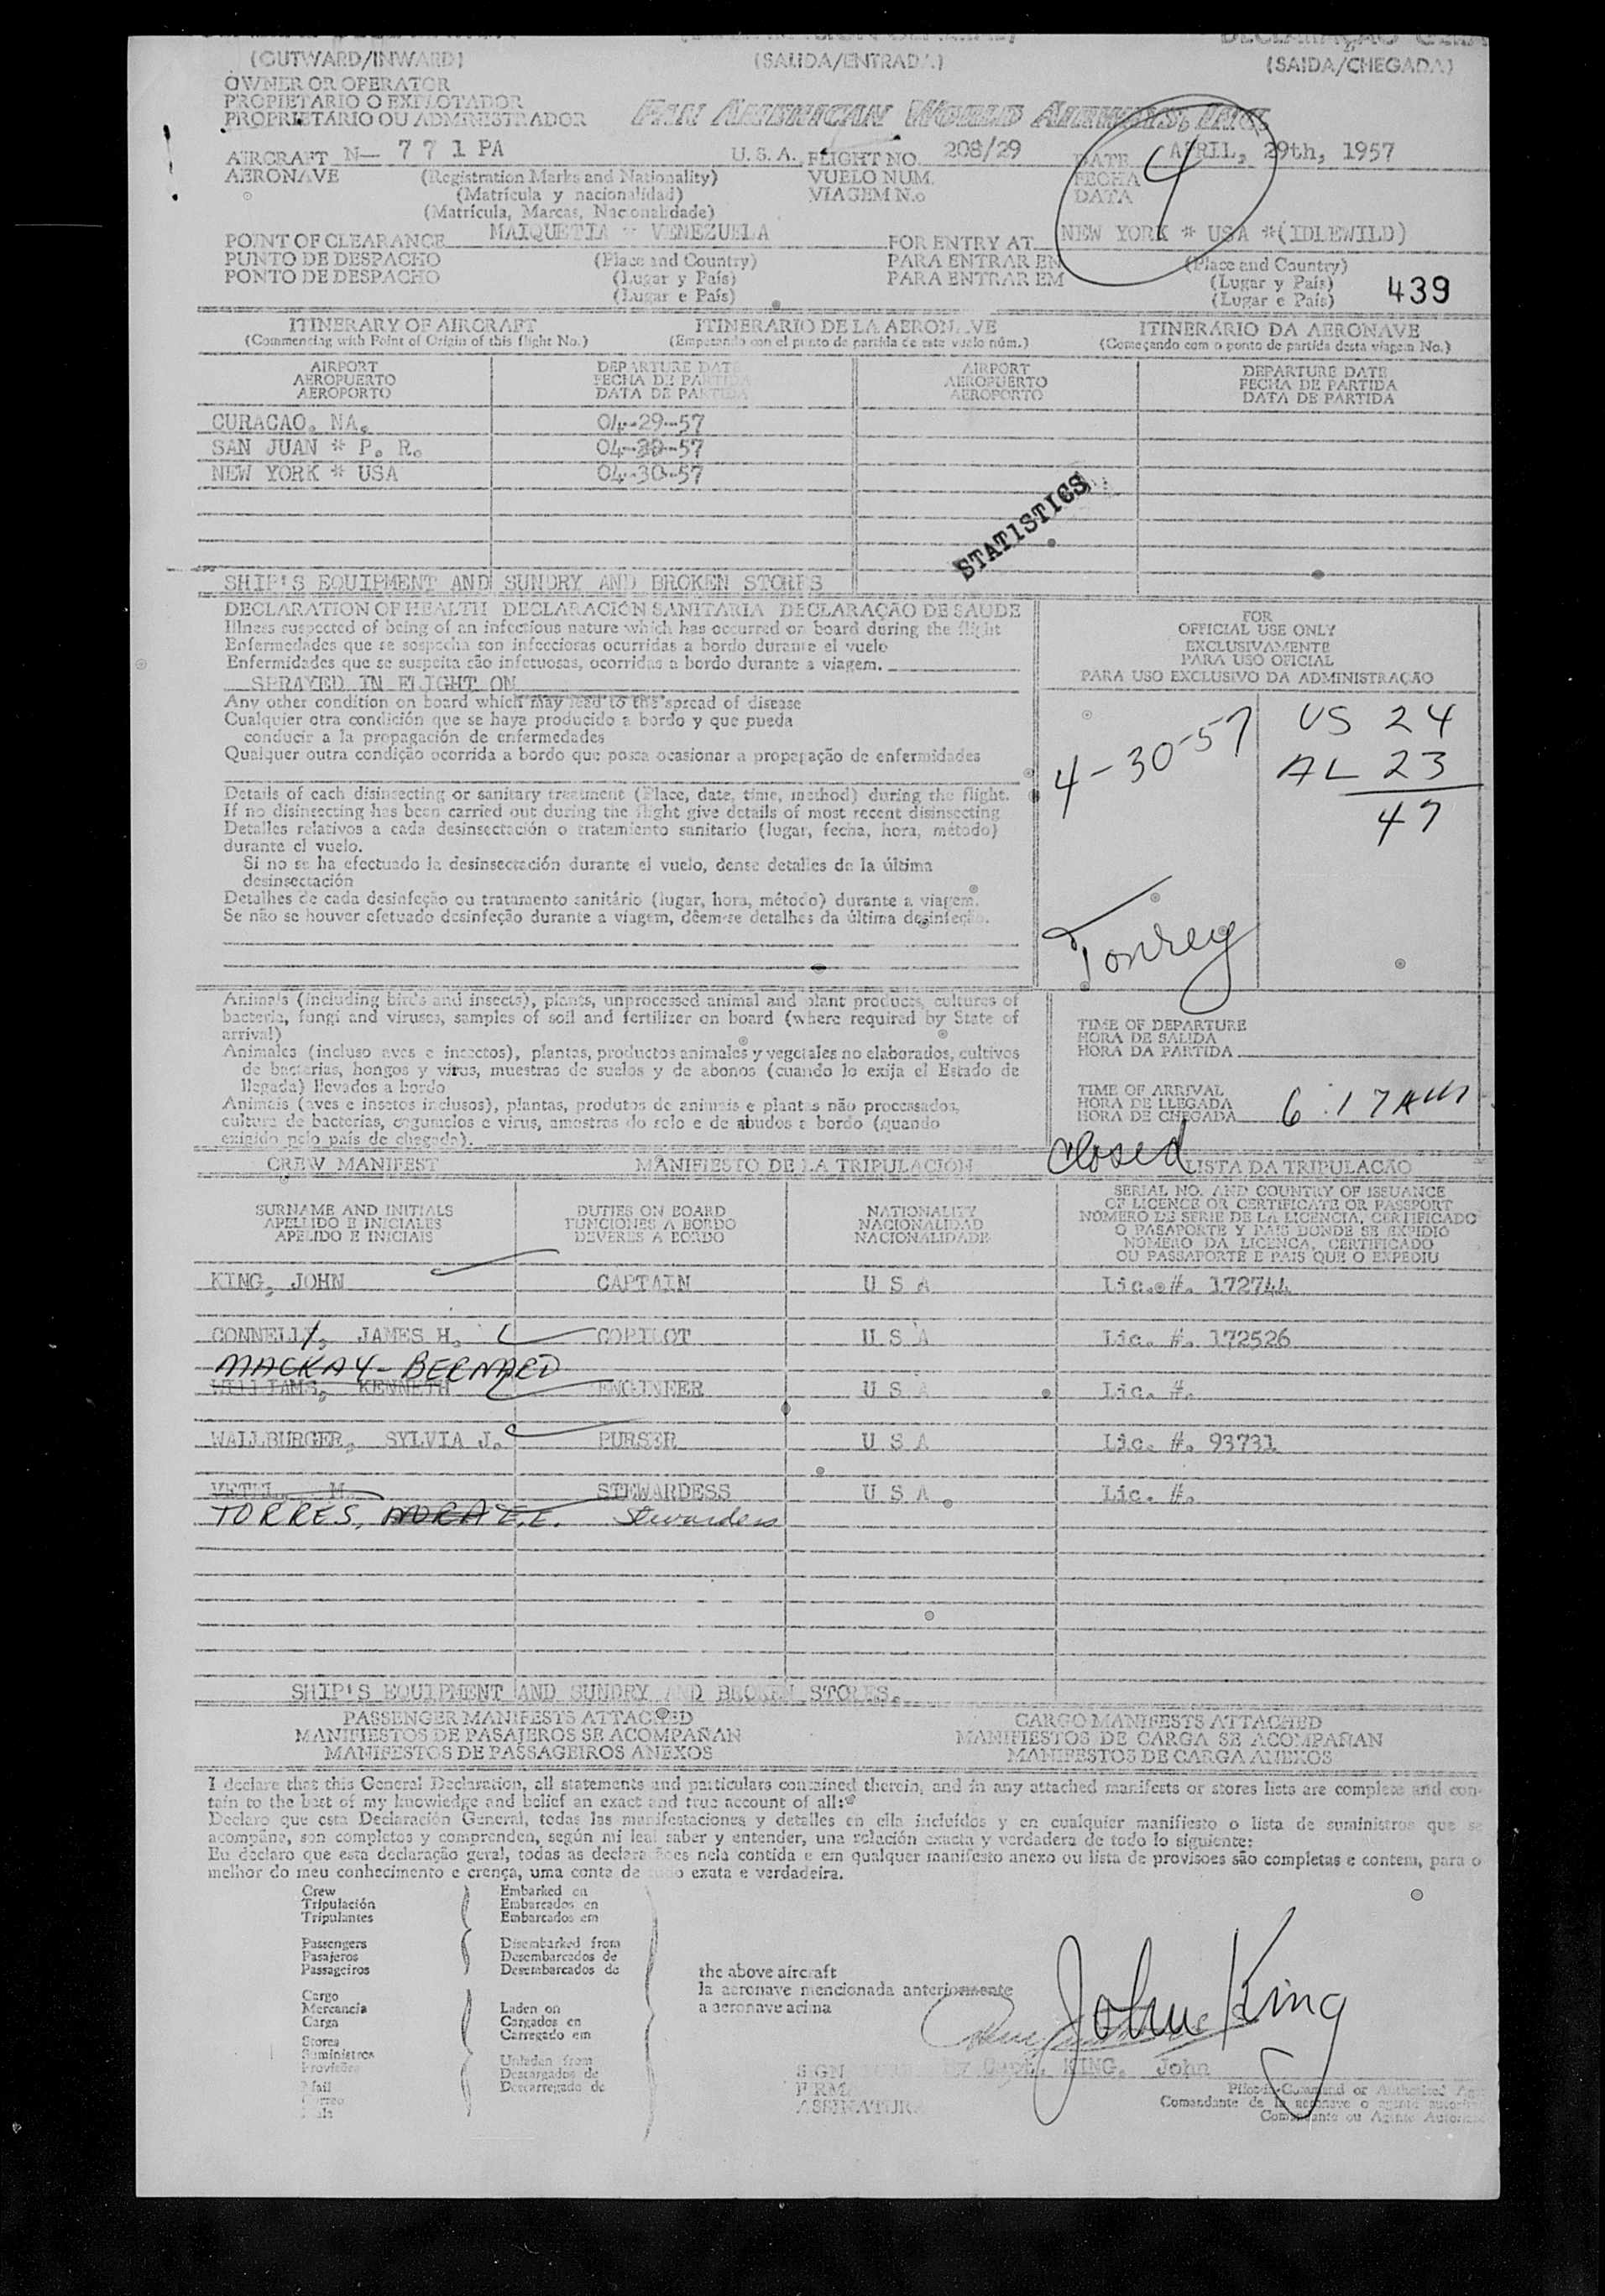 (OUTWARD/INWARD) (SALIDA/ENTRADA) (SAIDA/CHEGADA)
OWNER OR OPERATOR
PROPIETARIO O EXPLOTADOR
PROPRIETÁRIO OU ADMINISTRADOR PAN AMERICAN WORLD AIRWAYS, INC.
AIRCRAFT N- 771 PA U.S.A. FLIGHT NO. 208/29 DATE APRIL, 29th, 1957
AERONAVE (Registration Marks and Nationality) VUELO NUM. FECHA 4
(Matrícula y nacionalidad) VIAGEM N.o DATA
(Matrícula, Marcas, Nacionalidade)
POINT OF CLEARANCE MAIQUETIA * VENEZUELA FOR ENTRY AT NEW YORK * USA *(IDLEWILD)
PUNTO DE DESPACHO (Place and Country) PARA ENTRAR EN (Place and Country)
PONTO DE DESPACHO (Lugar y País) PARA ENTRAR EM (Lugar y País) 439
(Lugar e País) (Lugar e País)
ITINERARY OF AIRCRAFT ITINERARIO DE LA AERONAVE ITINERÁRIO DA AERONAVE
(Commencing with Point of Origin of this flight No.) (Empezando con el punto de partida de este vuelo núm.) (Começando com o ponto de partida desta viagem No.)
AIRPORT DEPARTURE DATE AIRPORT DEPARTURE DATE
AEROPUERTO FECHA DE PARTIDA AEROPUERTO FECHA DE PARTIDA
AEROPORTO DATA DE PARTIDA AEROPORTO DATA DE PARTIDA
CURACAO. NA. 04-29-57
SAN JUAN * P. R. 04-30-57
NEW YORK * USA 04-30-57
STATISTICS
SHIP'S EQUIPMENT AND SUNDRY AND BROKEN STORES
DECLARATION OF HEALTH DECLARACIÓN SANITARIA DECLARAÇÃO DE SAUDE
Illness suspected of being of an infectious nature which has occurred on board during the flight
Enfermedades que se sospecha son infecciosas ocurridas a bordo durante el vuelo
Enfermidades que se suspeita são infetuosas, ocorridas a bordo durante a viagem.
SPRAYED IN FLIGHT ON
Any other condition on board which may lead to the spread of disease
Cualquier otra condición que se haya producido a bordo y que pueda
conducir a la propagación de enfermedades
Qualquer outra condição ocorrida a bordo que possa ocasionar a propagação de enfermidades
Details of each disinsecting or sanitary treatment (Place, date, time, method) during the flight.
If no disinsecting has been carried out during the flight give details of most recent disinsecting
Detalles relativos a cada desinsectación o tratamiento sanitario (lugar, fecha, hora, método)
durante el vuelo.
Si no se ha efectuado la desinsectación durante el vuelo, dense detalles de la última
desinsectación
Detalhes de cada desinfeção ou tratamento sanitário (lugar, hora, método) durante a viagem.
Se não se houver efetuado desinfeção durante a viagem, dêem-se detalhes da última desinfeção.
FOR
OFFICIAL USE ONLY
EXCLUSIVAMENTE
PARA USO OFICIAL
PARA USO EXCLUSIVO DA ADMINISTRAÇÃO
4-30-57
US 24
AL 23
47
Animals (including birds and insects), plants, unprocessed animal and plant products, cultures of
bacteria, fungi and viruses, samples of soil and fertilizer on board (where required by State of
arrival)
Animales (incluso aves e insectos), plantas, productos animales y vegetales no elaborados, cultivos
de bacterias, hongos y virus, muestras de suelos y de abonos (cuando lo exija el Estado de
llegada) llevados a bordo
Animais (aves e insetos inclusos), plantas, produtos de animais e plantas não processados,
cultura de bacterias, cogumelos e virus, amostras do solo e de abudos a bordo (quando
exigido pelo país de chegada).
TIME OF DEPARTURE
HORA DE SALIDA
HORA DA PARTIDA
TIME OF ARRIVAL
HORA DE LLEGADA
HORA DE CHEGADA 6:17 AM
Closed
CREW MANIFEST MANIFIESTO DE LA TRIPULACIÓN LISTA DA TRIPULACÃO
SURNAME AND INITIALS DUTIES ON BOARD NATIONALITY SERIAL NO. AND COUNTRY OF ISSUANCE
APELLIDO E INICIALES FUNCIONES A BORDO NACIONALIDAD OF LICENCE OR CERTIFICATE OR PASSPORT
APELIDO E INICIAIS DEVERES A BORDO NACIONALIDADE NÚMERO DE SERIE DE LA LICENCIA, CERTIFICADO
O PASAPORTE Y PAIS DONDE SE EXPIDIO
NÚMERO DA LICENCA, CERTIFICADO
OU PASSAPORTE E PAIS QUE O EXPEDIU
KING, JOHN CAPTAIN U S A Lic. #. 172744
CONNELLY, JAMES H. COPILOT U S A Lic. #. 172526
MACKAY - BERNARD
WILLIAMS, KENNETH ENGINEER U S A Lic. #.
WALLBURGER, SYLVIA J. PURSER U S A Lic. #. 93731
VETEL, M. STEWARDESS U S A Lic. #.
TORRES, NORA E.E. Stewardess
SHIP'S EQUIPMENT AND SUNDRY AND BROKEN STORES.
PASSENGER MANIFESTS ATTACHED CARGO MANIFESTS ATTACHED
MANIFIESTOS DE PASAJEROS SE ACOMPAÑAN MANIFIESTOS DE CARGA SE ACOMPAÑAN
MANIFESTOS DE PASSAGEIROS ANEXOS MANIFESTOS DE CARGA ANEXOS
I declare that this General Declaration, all statements and particulars contained therein, and in any attached manifests or stores lists are complete and con-
tain to the best of my knowledge and belief an exact and true account of all:
Declaro que esta Declaración General, todas las manifestaciones y detalles en ella incluídos y en cualquier manifiesto o lista de suministros que se
acompañe, son completos y comprenden, según mi leal saber y entender, una relación exacta y verdadera de todo lo siguiente:
Eu declaro que esta declaração geral, todas as declarações nela contida e em qualquer manifesto anexo ou lista de provisoes são completas e contem, para o
melhor do meu conhecimento e crença, uma conta de tudo exata e verdadeira.
Crew Embarked on
Tripulación Embarcados en
Tripulantes Embarcados em
Passengers Disembarked from
Pasajeros Desembarcados de
Passageiros Desembarcados de
the above aircraft
la aeronave mencionada anteriormente
a aeronave acima
Cargo
Mercancia Laden on
Carga Cargados en
Carregado em
Stores
Suministros Unladen from
Provisões Descargados de
Mail Descarregado de
John King
By Capt. KING, John
ASSINATURA
Pilot-in-Command or Authorized
Comandante de la aeronave o agente
Comandante ou Agente